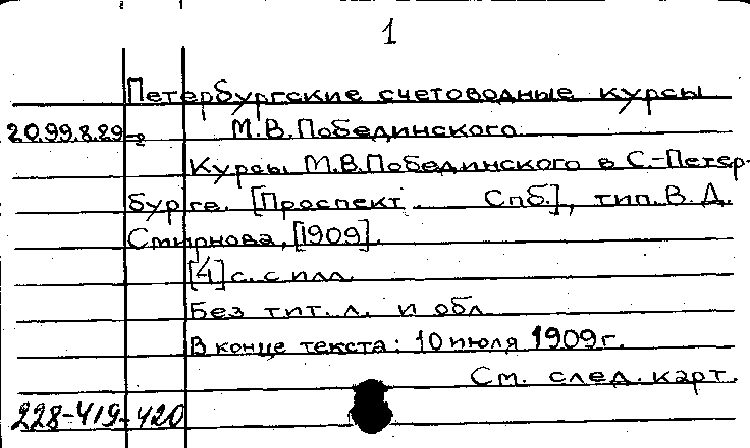 1
Петербургские счетоводные курсы
20.99.8.29
М.В.Побединского.
Курсы М.В.Побединского в С-Петер-
бурге. [Проспект. Спб.], тип. В.Д.
Смирнова, [1909].
[4] с. с илл.
Без тит. л. и обл.
В конце текста: 10 июля 1909г.
См. след. карт.
228-419-420